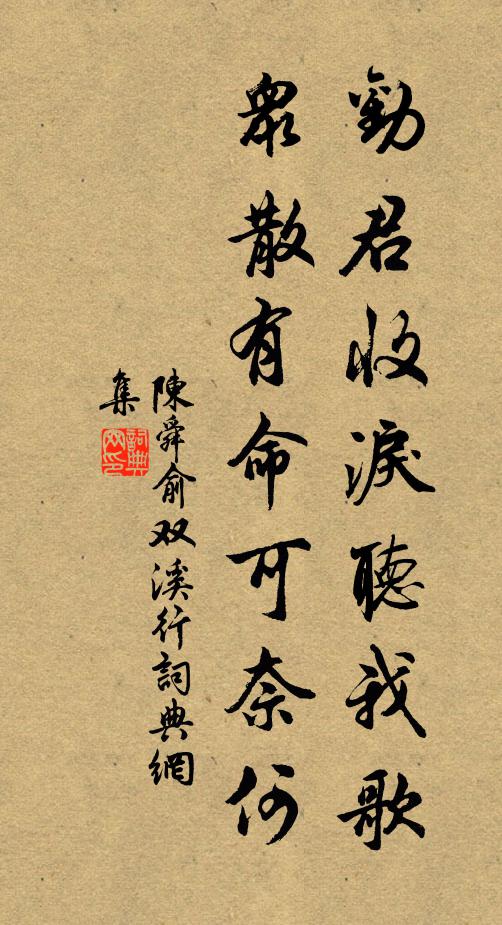 勸君收淚聽我歌
衆散有命可奈何
陳舜俞双溪行詞典網
集
詞典网印